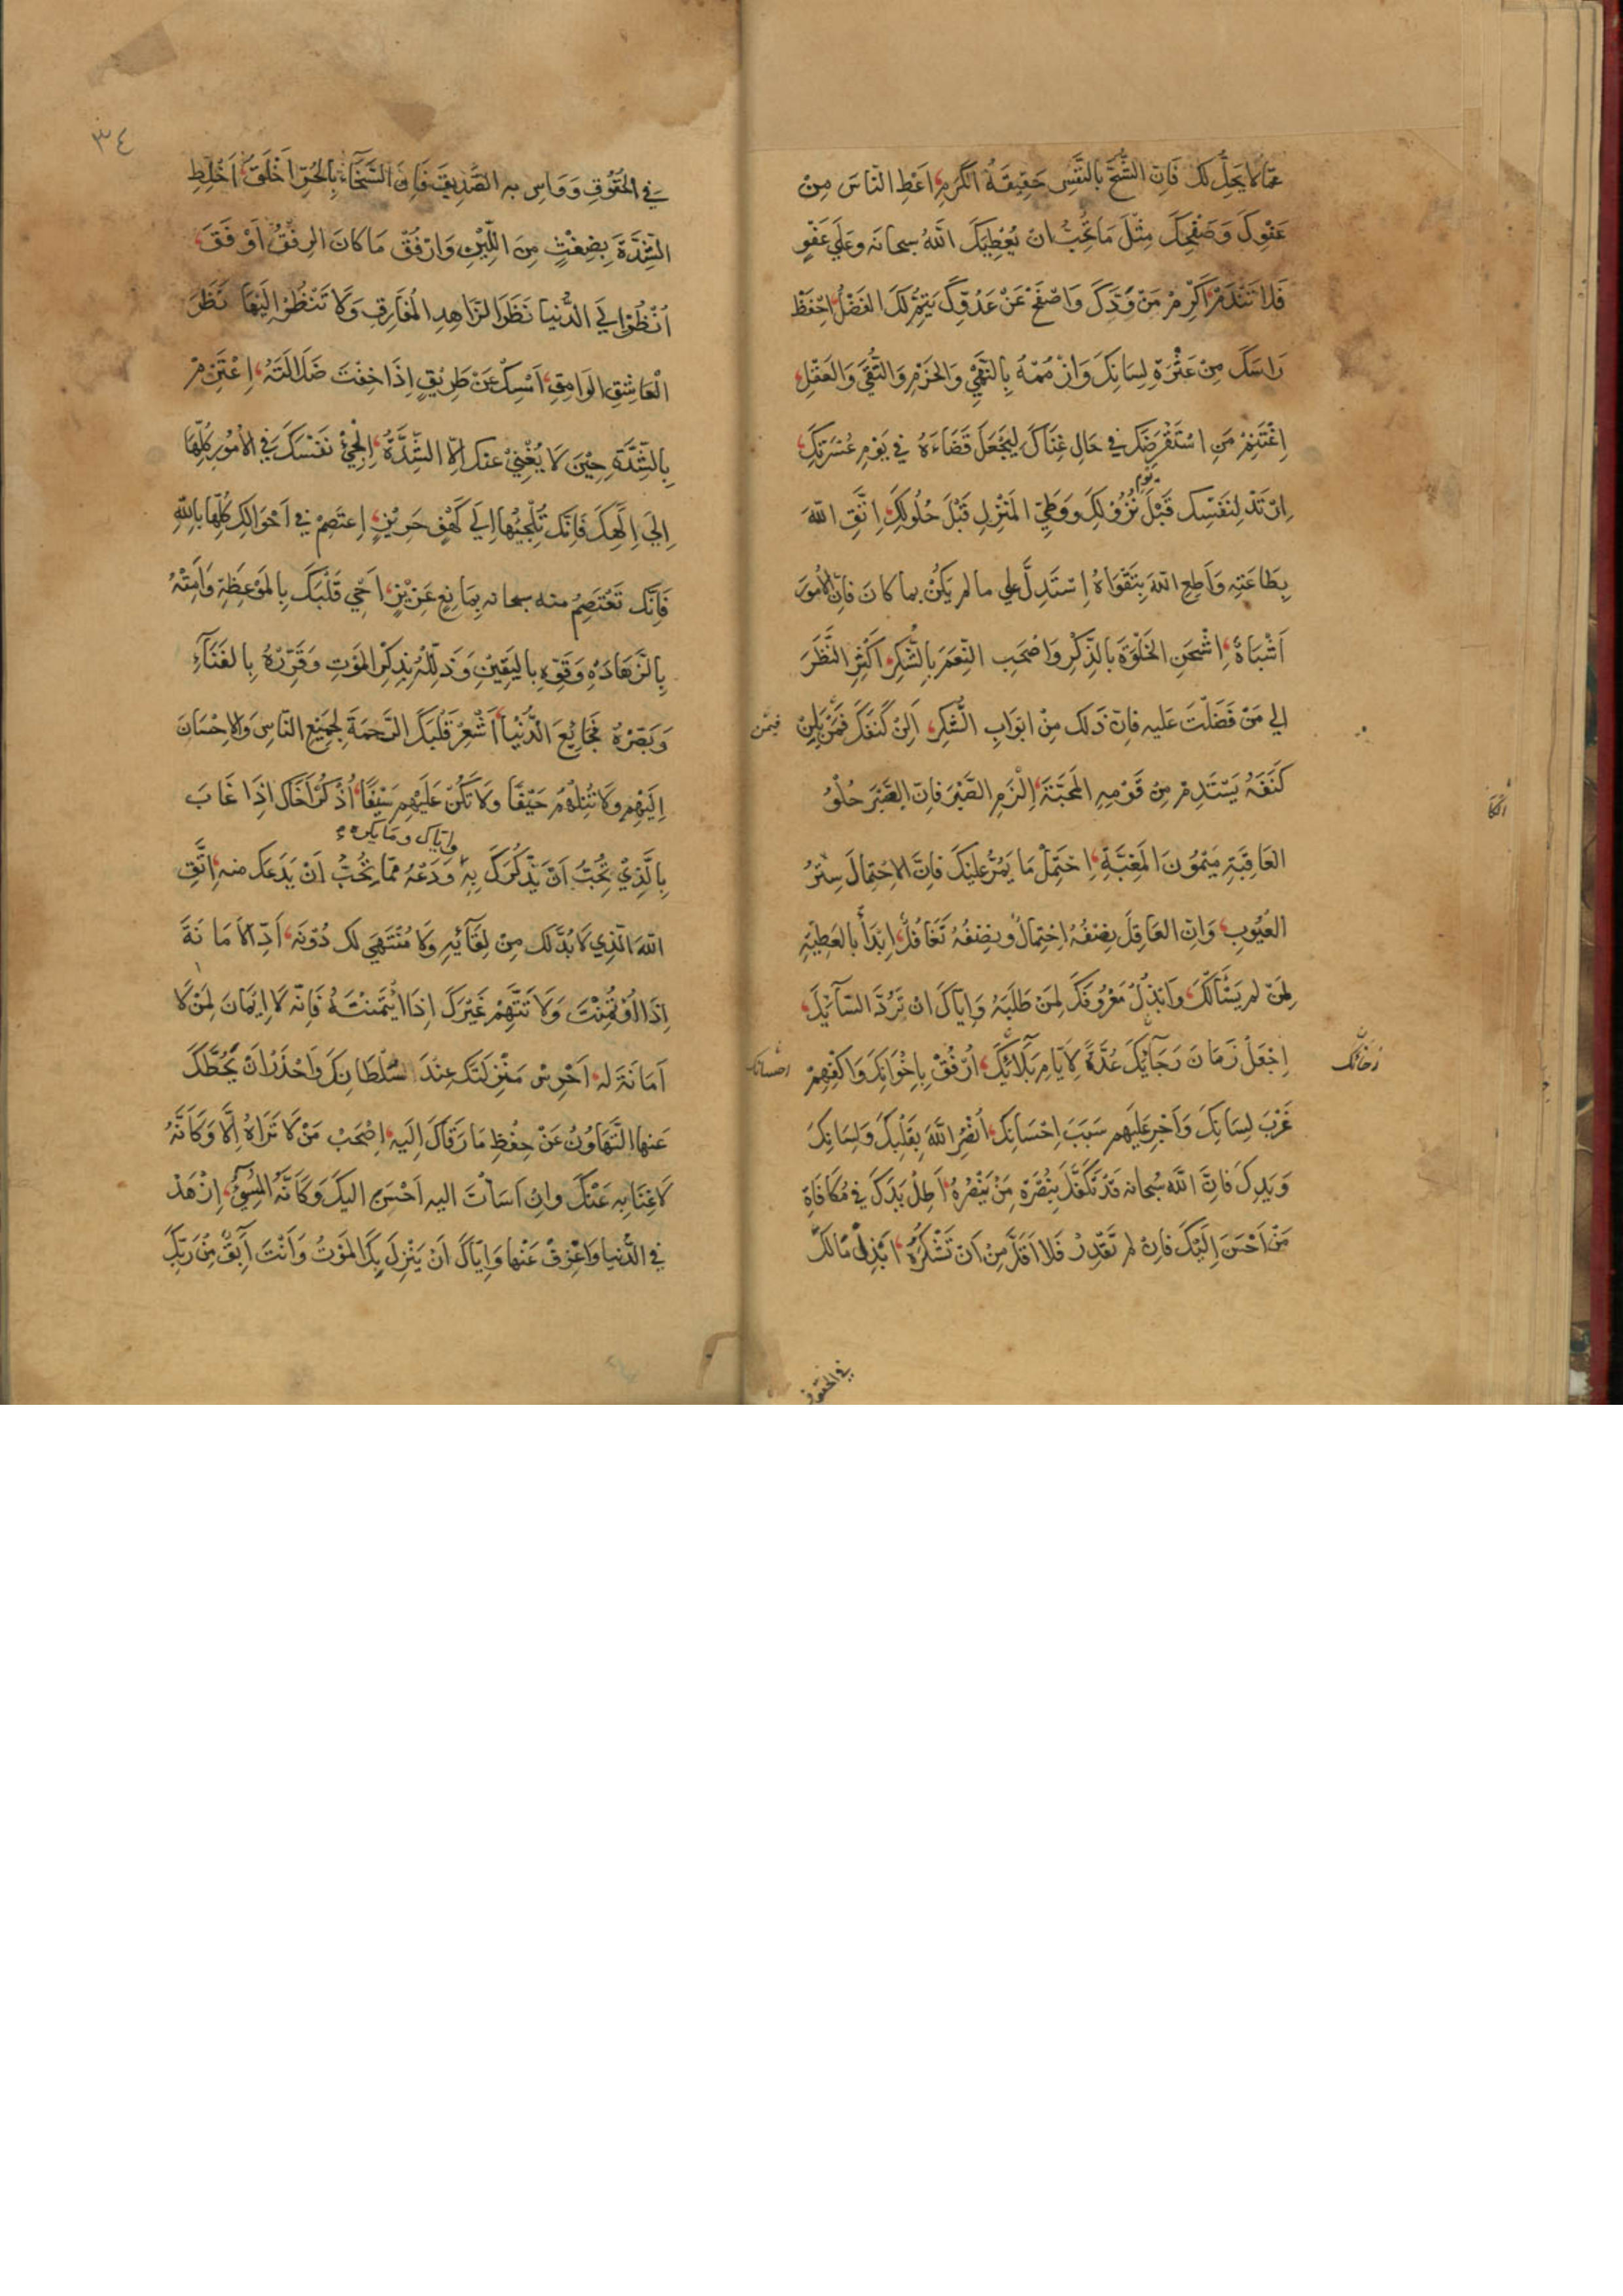 ممّا لا يحلّ لك فَاِنّ الشُّحَّ بالنَّفْسِ حَقِيقَةُ الكَرَمِ، اَعْطِ النّاسَ مِنْ
عَفْوِكَ وَصَفْحِكَ مِثْلَ مَا تُحِبُّ انْ يُعْطِيَكَ اللّهُ سبحانه وعَلي عَفْوٍ
فَلا تَنْدَمْ، اَكْرِمْ مَنْ وَدَّكَ وَاصْفَحْ عَنْ عَدُوِّكَ يَتِمُّ لَكَ الفَضْلُ، اِحْفَظْ
رَاسَكَ مِنْ عَثْرَةِ لِسَانِكَ وَازْمُمْهُ بِالنُّهي وَالحَزْمِ وَالتُّقَي وَالعَقْلِ،
اِغْتَنِمْ مَنِ اسْتَقْرَضَكَ في حَالِ غِنَاكَ لِيَجْعَلَ قَضَاءَهُ في يَوْمِ عُسْرَتِكَ،
اِرْتَدْ لِنَفْسِكَ قَبْلَ يوم نُزُولِكَ وَوَطِّئِ المَنْزِلِ قَبْلَ حُلُولِكَ، اِتَّقِ اللّهَ
بِطَاعَتِهِ وَاَطِعِ اللّهَ بِتَقْوَاهُ اِسْتَدِلَّ علي ما لم يَكُنْ بما كانَ فانّ الاُمُورَ
اَشْبَاهٌ، اِشْحَنِ الخَلْوَةَ بالذِّكْرِ وَاصْحَبِ النِّعَمَ بِالشُّكْرِ، اَكْثِرِ النَّظَرَ
الي مَنْ فَضَلْتَ عَليه فانّ ذَلك مِنْ ابوَابِ الشُّكْرِ، اَلِنْ كَنَفَكَ فَمَنْ يَلِنْ فيمن
كَنَفَهُ يَسْتَدِمْ مِنْ قَوْمِهِ المَحَبَّةَ، اِلْزَمِ الصَّبْرَ فانّ الصَّبْرَ حُلْوُ
العَاقِبَةِ مَيْمُونَ المَغَبَّةِ، اِحْتَمِلْ مَا يَمُرُّ عَلَيْكَ فَانّ الاحْتِمَالَ سِتْرُ
العُيُوبِ، وَاِنّ العَاقِلَ نِصْفُهُ اِحْتِمَالٌ ونِصْفُهُ تَغَافُلٌ، اِبْدَأْ بالعَطِيَّةِ
لِمَنْ لم يَسْأَلْكَ، وابْذُلْ مَعْرُوفَكَ لِمَنْ طَلَبَهُ وَاِيّاكَ ان تَرُدَّ السّآئِلَ،
اِجْعَلْ زَمَانَ رَجَآئِكَ عُدَّةً لِاَيّامِ بَلَآئِكَ، اُرْفُقْ بِاِخْوَانِكَ وَاكْفِهِمْ رخائك احسانك
غَرْبَ لِسَانِكَ وَاَجْرِ عَلَيهم سَبَبَ اِحْسَانِكَ، اُنْصُرِ اللَّهَ بِقَلْبِكَ وَلِسَانِكَ
وَيَدِكَ فَانَّ اللَّهَ سُبحانه قَدْ تَكَفَّلَ بِنُصْرَةِ مَنْ يَنْصُرُهُ، اَطِلْ يَدَكَ في مُكَافَاةِ
مَنْ اَحْسَنَ اِلَيْكَ فَانْ لم تَقْدِرْ فَلا اَقَلَّ مِنْ اَنْ تَشْكُرَهُ، ابْذِلْ مَالَكَ
في الحقوق
٣٤
في الحُقُوقِ وَوَاسِ به الصَّدِيقَ فَاِنَّ السَّخَآءَ بِالحُرِّ اَخْلَقُ، اَخْلِطِ
الشِّدَّةَ بِضِغْثٍ مِنَ اللِّيْنِ وَارْفُقْ مَا كانَ الرِفْقُ اَوْفَقَ،
اُنْظُرْ اِلي الدُّنْيا نَظَرَ الزَّاهِدِ المُفَارِقِ وَلَا تَنْظُرْ اِلَيْها نَظَرَ
الْعَاشِقِ الوَامِقِ، اَمْسِكْ عَنْ طَرِيْقٍ اِذَا خِفْتَ ضَلَالَتَهُ، اِعْتَزِمْ
بِالشِّدَّةِ حِيْنَ لَا يُغْنِيْ عَنكَ اِلّا الشِّدَّةُ، اِلْجَئْ نَفْسَكَ في الاُمُورِ كُلِّهَا
اِلَي اِلَهِكَ فَاِنَّكَ تُلْجِئُهَا اِلَي كَهْفٍ حَرِيْزٍ، اِعتَصِمْ في اَحْوَالِكَ كُلِّهَا بِاللّهِ
فَاِنَّكَ تَعْتَصِمُ منه سبحانه بِمَانِعٍ عَزِيْزٍ، اَحْيِ قَلْبَكَ بِالمَوْعِظَةِ وَاَمِتْهُ
بِالزَّهَادَةِ وَقَوِّهِ باليَقِيْنِ وَذَلِّلْهُ بِذِكْرِ المَوْتِ وَقَرِّرْهُ بِالفَنَآءِ
وَبَصِّرْهُ فَجَائِعَ الدُّنْيَا، اَشْعِرْ قَلْبَكَ الرَّحمَةَ لِجَمِيْعِ النّاسِ وَالاِحْسَانَ
اِلَيْهِمْ وَلا تُنِلْهُمْ حَيْفًا وَلا تَكُنْ عَلَيْهِمْ سَيْفًا، اُذْكُرْ اَخَاكَ اِذَا غَابَ
بِالَّذِيْ تُحِبُّ اَنْ يَذْكُرَكَ بِهِ وَايّاك وما يكره وَدَعْهُ مِمّا تُحِبُّ اَنْ يَدَعَكَ منه، اِتَّقِ
اللّهَ الّذِي لَا بُدَّ لَكَ مِنْ لِقَآئِهِ وَلَا مُنْتَهَي لك دُوْنَه، اَدِّ الاَمَانَةَ
اِذَا اؤتُمِنْتَ وَلَا تَتَّهِمْ غَيْرَكَ اِذَا ايْتَمَنْتَهُ فَاِنّه لَا اِيْمَانَ لِمَنْ لَا
اَمَانَةَ له، اُحْرُسْ مَنْزِلَتَكَ عِنْدَ سُلْطَانِكَ وَاحْذَرْ اَنْ يَحُطَّكَ
عَنها التَّهَاوُنُ عَنْ حِفْظِ مَا رَقَّاكَ اِلَيه، اِصْحَبْ مَنْ لَا تَرَاهُ اِلَّا وَكَاَنَّهُ
لَا غِنَا بِهِ عَنْكَ وانْ اَسَأْتَ اليه اَحْسَنَ اليكَ وَكَاَنَّهُ المُسِيْءُ، اِزْهَدْ
في الدُّنيا وَاعْزِفْ عَنْها وَاِيّاكَ اَنْ يَنْزِلَ بِكَ المَوْتُ وَاَنْتَ اَبِقٌ مِنْ رَبِّكَ